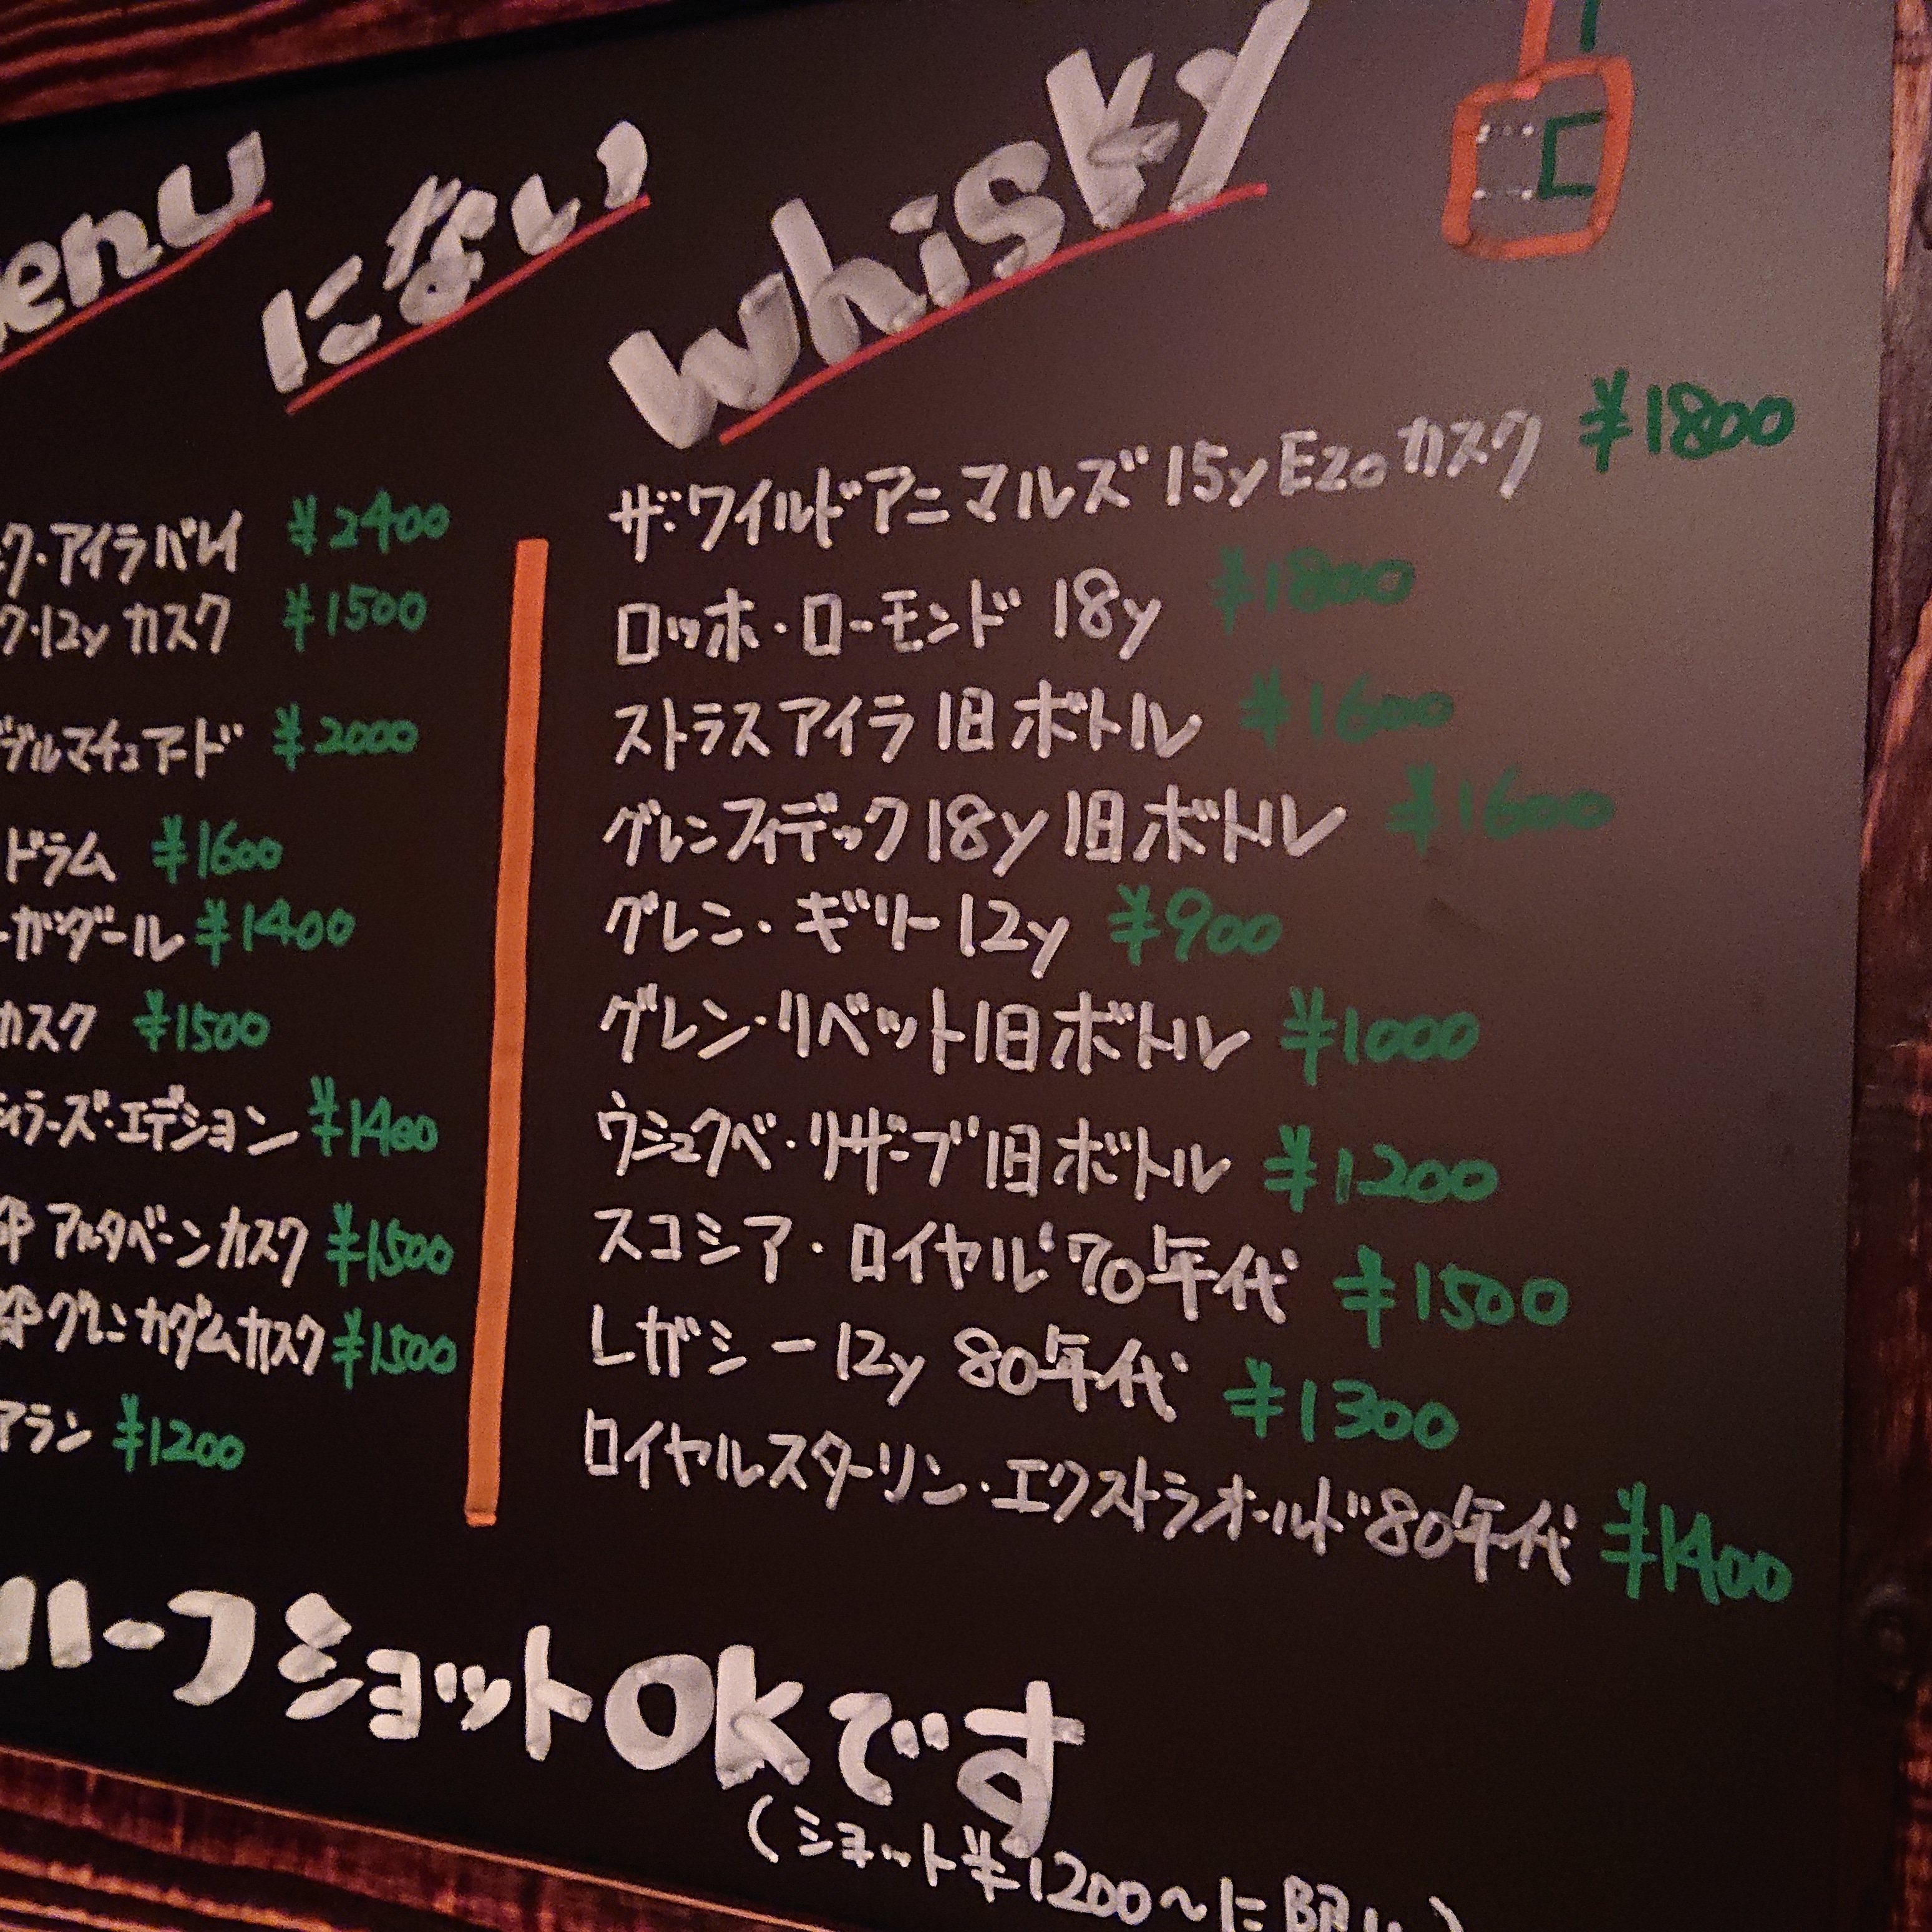 enu にない Whisky
ク・アイラバレイ ¥2400
ク・12y カスク ¥1500
ブルマチュアード ¥2000
ドラム ¥1600
ーガダール ¥1400
カスク ¥1500
ィラーズ・エデション ¥1400
アルタベーンカスク ¥1500
グレンカダムカスク ¥1500
アラン ¥1200
ザ・ワイルドアニマルズ 15y Ezo カスク ¥1800
ロッホ・ローモンド 18y ¥1800
ストラスアイラ 旧ボトル ¥1600
グレンフィデック 18y 旧ボトル ¥1600
グレン・ギリー 12y ¥900
グレン・リベット 旧ボトル ¥1000
ウシュクベ・リザーブ 旧ボトル ¥1200
スコシア・ロイヤル '70年代 ¥1500
レガシー 12y 80年代 ¥1300
ロイヤルスターリン・エクストラオールド 80年代 ¥1400
ハーフショットOKです
(ショット¥1200〜に限い)